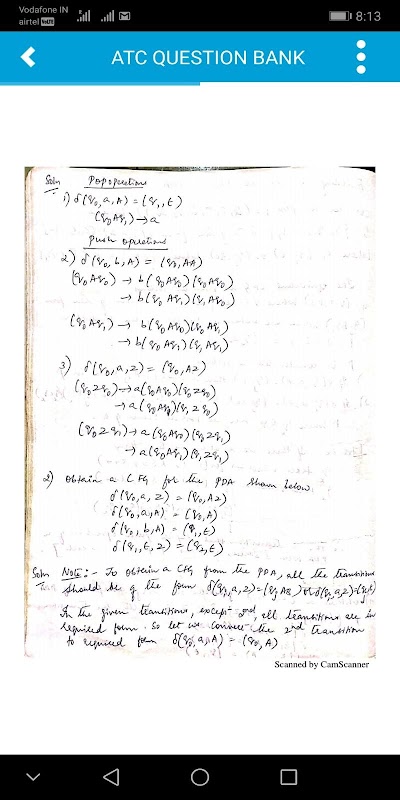 Vodafone IN
airtel VoLTE
8:13
ATC QUESTION BANK
Soln Pop operations
1) δ(q₀, a, A) = (q₁, ε)
(q₀Aq₁) → a
Push operations
2) δ(q₀, b, A) = (q₀, AA)
(q₀Aq₀) → b(q₀Aq₀)(q₀Aq₀)
→ b(q₀Aq₁)(q₁Aq₀)
(q₀Aq₁) → b(q₀Aq₀)(q₀Aq₁)
→ b(q₀Aq₁)(q₁Aq₁)
3) δ(q₀, a, z) = (q₀, Az)
(q₀zq₀) → a(q₀Aq₀)(q₀zq₀)
→ a(q₀Aq₁)(q₁zq₀)
(q₀zq₁) → a(q₀Aq₀)(q₀zq₁)
→ a(q₀Aq₁)(q₁zq₁)
2) Obtain a CFG for the PDA shown below.
δ(q₀, a, z) = (q₀, Az)
δ(q₀, a, A) = (q₀, A)
δ(q₀, b, A) = (q₁, ε)
δ(q₁, ε, z) = (q₂, ε)
Soln Note:- To obtain a CFG from the PDA, all the transitions
should be of the form δ(qi, a, z) = (qj, AB) or δ(qi, a, z) = (qj, ε)
In the given transitions, except 2nd, all transitions are in
required form. So let us convert the 2nd transition
to required form δ(q₀, a, A) = (q₀, A)
Scanned by CamScanner